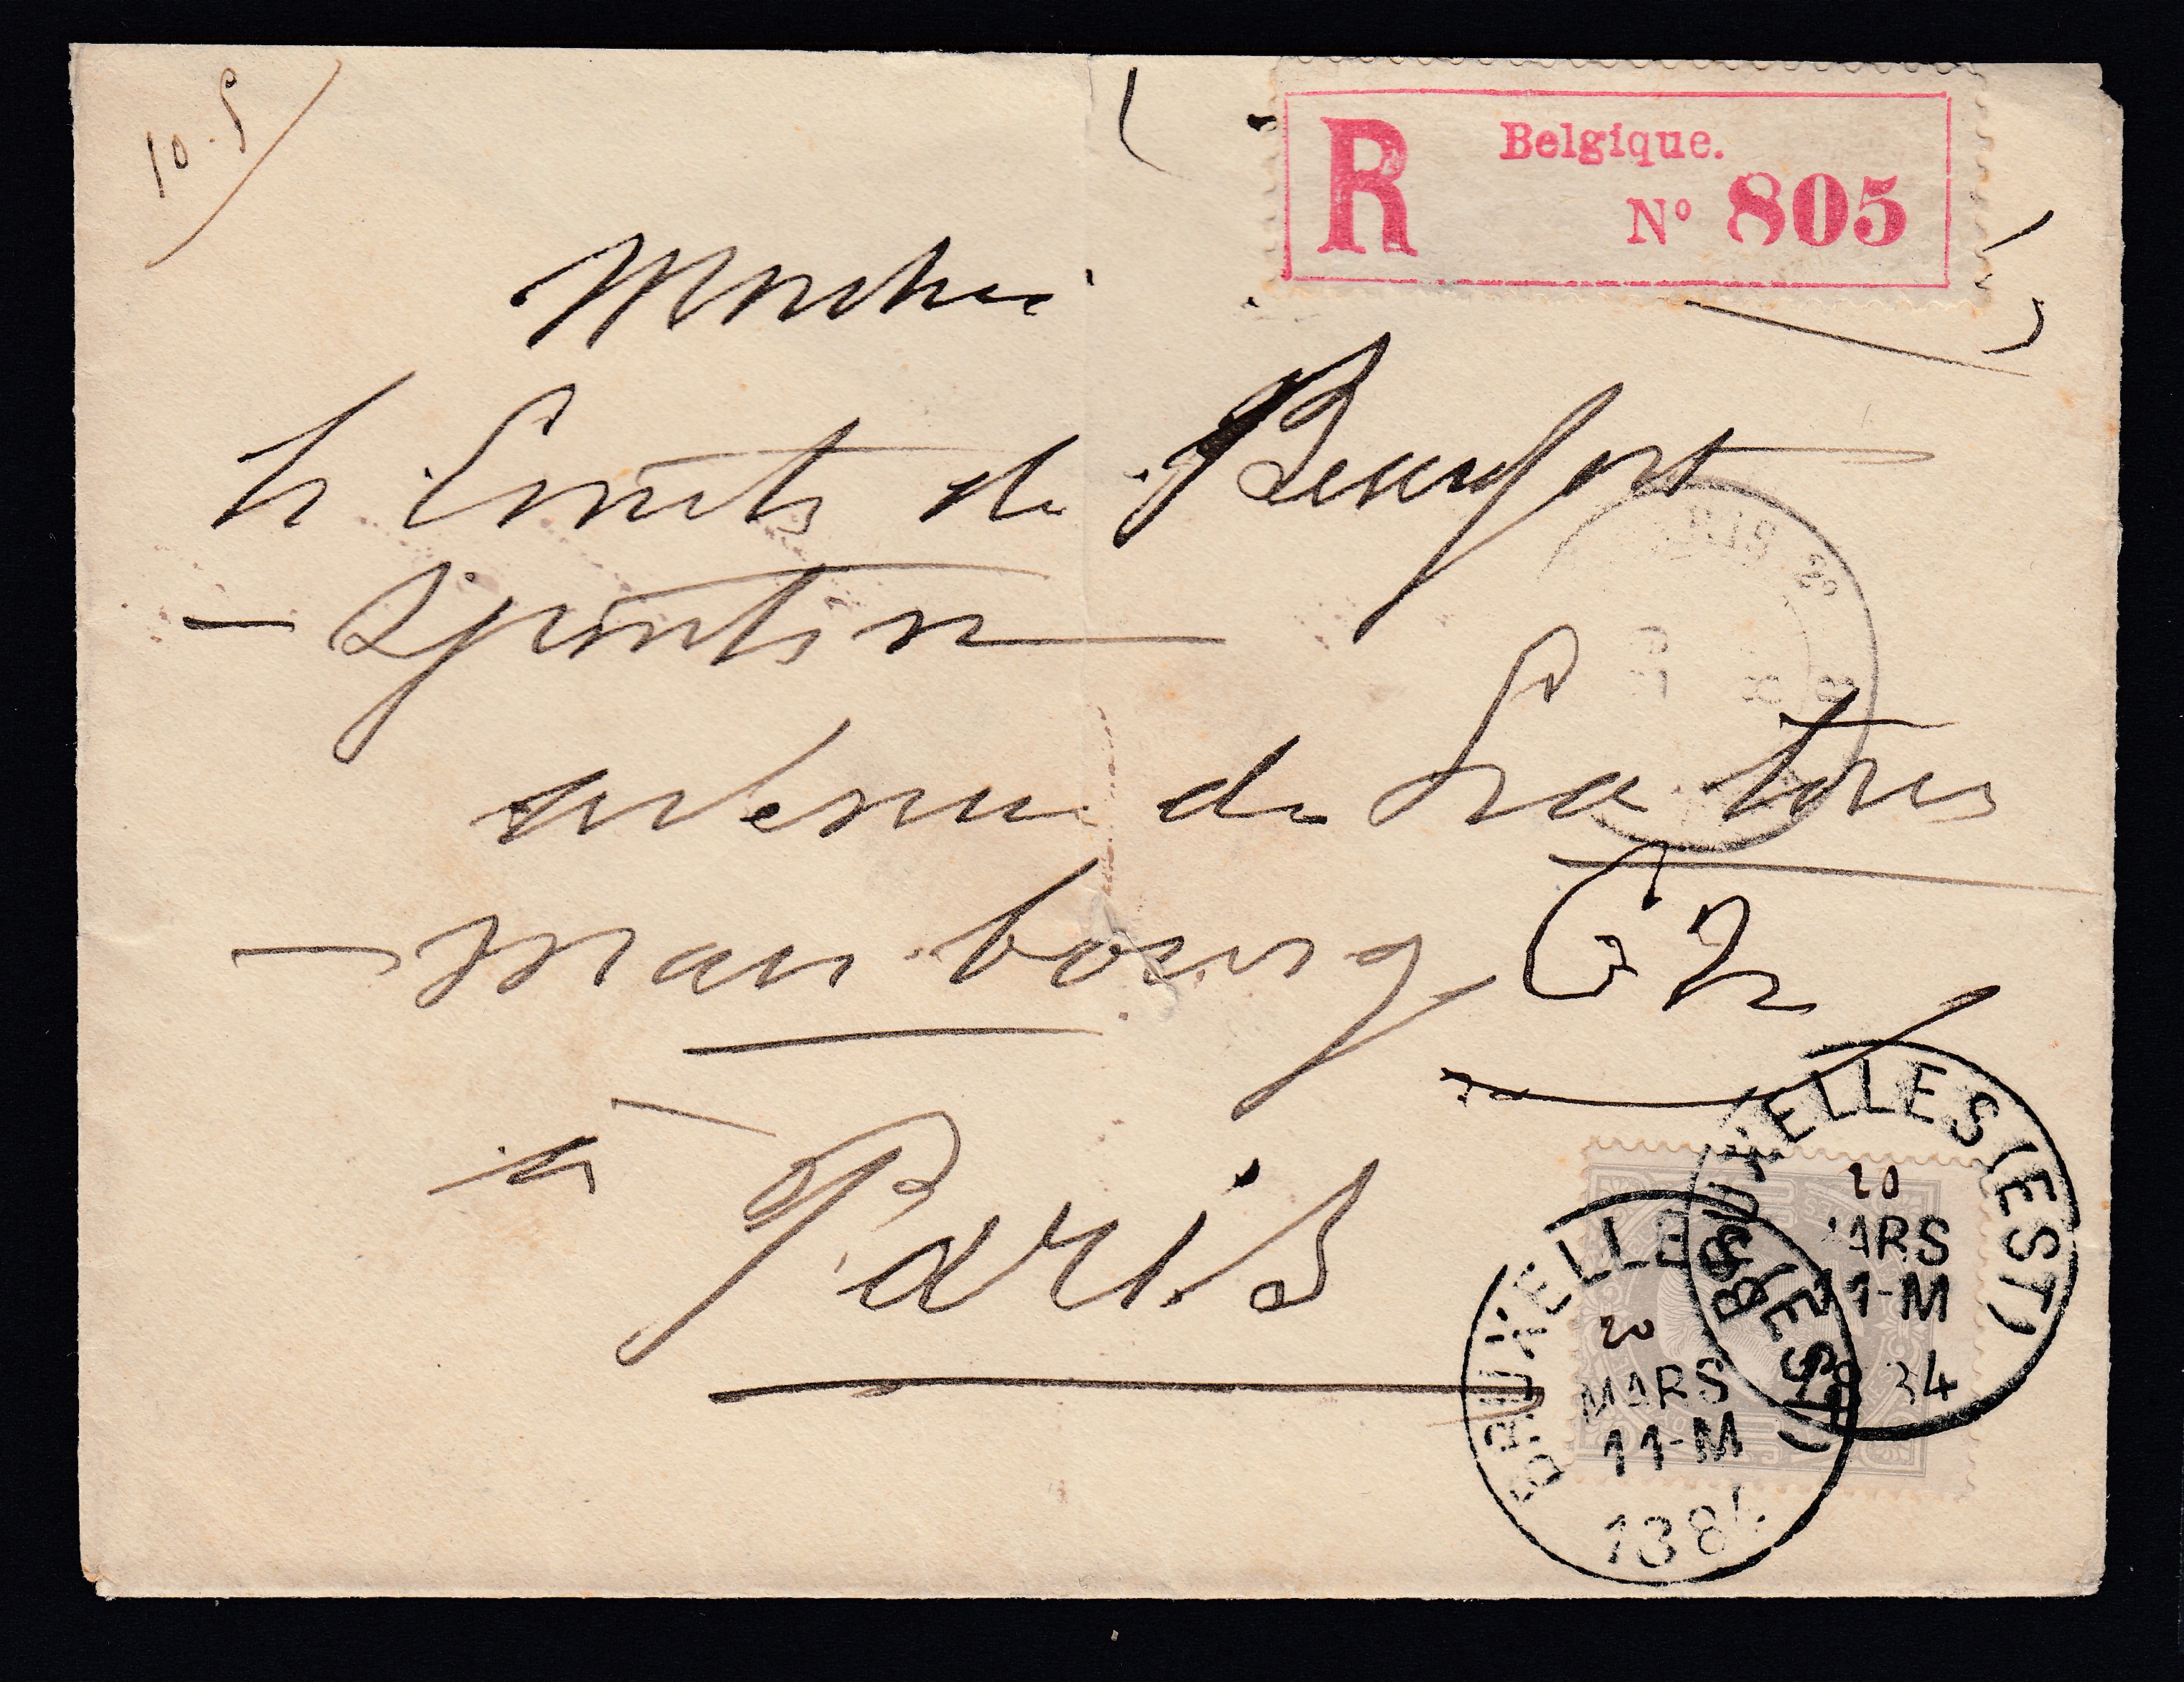 10.5
R Belgique.
Nº 805
Monsieur
le Comte de Beaufort
- Spontin
PARIS
avenue de La Tour
- Maubourg
à Paris
BRUXELLES (EST)
20
MARS
11-M
BRUXELLES (EST)
20
MARS
11-M